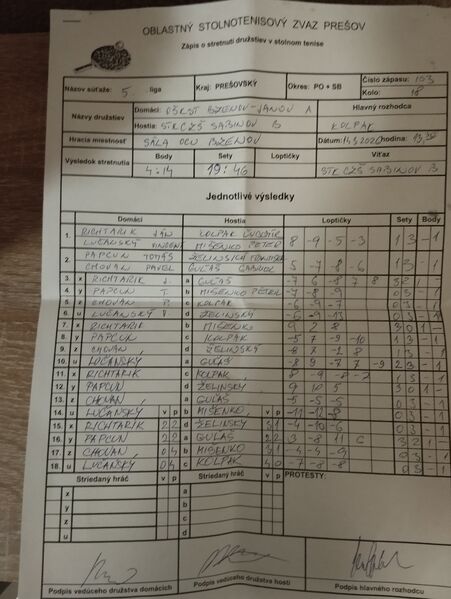 OBLASTNÝ STOLNOTENISOVÝ ZVAZ PREŠOV
Zápis o stretnutí družstiev v stolnom tenise
Názov súťaže: 5. liga Kraj: PREŠOVSKÝ Okres: PO + SB Číslo zápasu: 103
Kolo: 18
Názvy družstiev Domáci: OŠKST BZENOV-JANOV A Hlavný rozhodca
Hostia: STK CZŠ SABINOV B KOLPAK
Hracia miestnosť SALA OCU BZENOV Dátum: Hodina:
Výsledok stretnutia Body Sety Loptičky Víťaz
4:14 19:46 STK CZŠ SABINOV B
Jednotlivé výsledky
Domáci Hostia Loptičky Sety Body
1. RICHTARIK JÁN KOLPAK
LUČANSKÝ VINCENT MIŠENKO PETER 8 -9 -5 -3 1 3 - 1
2. PAPCUN TOMÁŠ ŽELINSKÝ
CHOVAN PAVEL GULÁŠ 5 -7 -8 -6 1 3 - 1
3. x RICHTARIK J. a GULÁŠ
4. y PAPCUN T. b MIŠENKO PETER -7 -8 9 0 3 - 1
5. z CHOVÁN P. c KOLPAK -6 -9 -7 0 3 - 1
6. u LUČANSKÝ V. d ŽELINSKÝ -6 -9 -13 0 3 - 1
7. x RICHTARIK b MIŠENKO 9 2 8 3 0 1 -
8. y PAPCUN c KOLPAK -5 7 -9 -10 1 3 - 1
9. z CHOVÁN d ŽELINSKÝ
10. u LUČANSKÝ a GULÁŠ -8 9 -7 7 -9 2 3 - 1
11. x RICHTARIK c KOLPAK 8 -9 -8 1 3 - 1
12. y PAPCUN d ŽELINSKY 9 10 5 3 0 1 -
13. z CHOVAN a GULÁŠ -5 -5 -5 0 3 - 1
14. u LUČANSKÝ v p b MIŠENKO v p -11 -12 0 3 - 1
15. x RICHTARIK 2 2 d ŽELINSKY 3 1 -4 -10 -6 0 3 - 1
16. y PAPCUN 2 2 a GULÁŠ 2 2 3 -8 11 6 3 2 1 -
17. z CHOVAN 0 4 b MIŠENKO 3 1 -4 -4 -9 0 3 - 1
18. u LUČANSKÝ 0 4 c KOLPAK 4 0 -7 -8 -8 0 3 - 1
Striedaný hráč v p Striedaný hráč v p PROTESTY:
x a
y b
z c
u d
Podpis vedúceho družstva domácich Podpis vedúceho družstva hostí Podpis hlavného rozhodcu